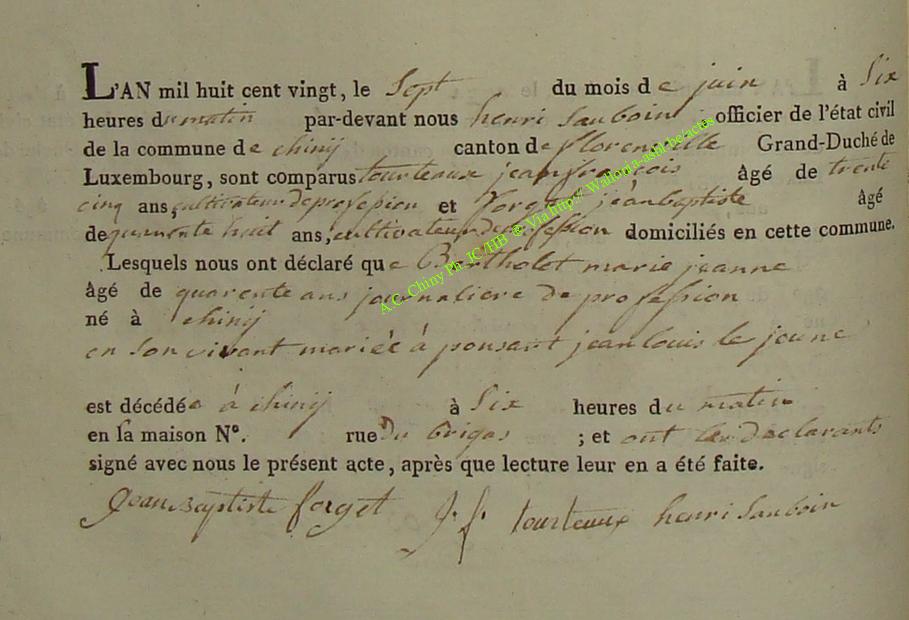 L'AN mil huit cent vingt, le Sept du mois de juin à Six
heures du matin par-devant nous henri Sauboin officier de l'état civil
de la commune de chinÿ canton de florenville Grand-Duché de
Luxembourg, sont comparus tourteaux jeanfrancois âgé de trente
cinq ans, cultivateur de profession et forget jeanbaptiste âgé
de quarente huit ans, cultivateur de profession domiciliés en cette commune.
Lesquels nous ont déclaré que Bertholet marie jeanne
âgé de quarente ans journaliere de profession
né à chinÿ
en son vivant mariée à ponsart jean louis le jeune
est décédée à chinÿ à Six heures du matin
en la maison N°. rue Du brigas ; et ont les declarants
signé avec nous le présent acte, après que lecture leur en a été faite.
jean Baptiste forget J. f. tourteaux henri Sauboin
A.C. Chiny Ph. JC/HB © Via http:// Wallonia-asbl.be/actes